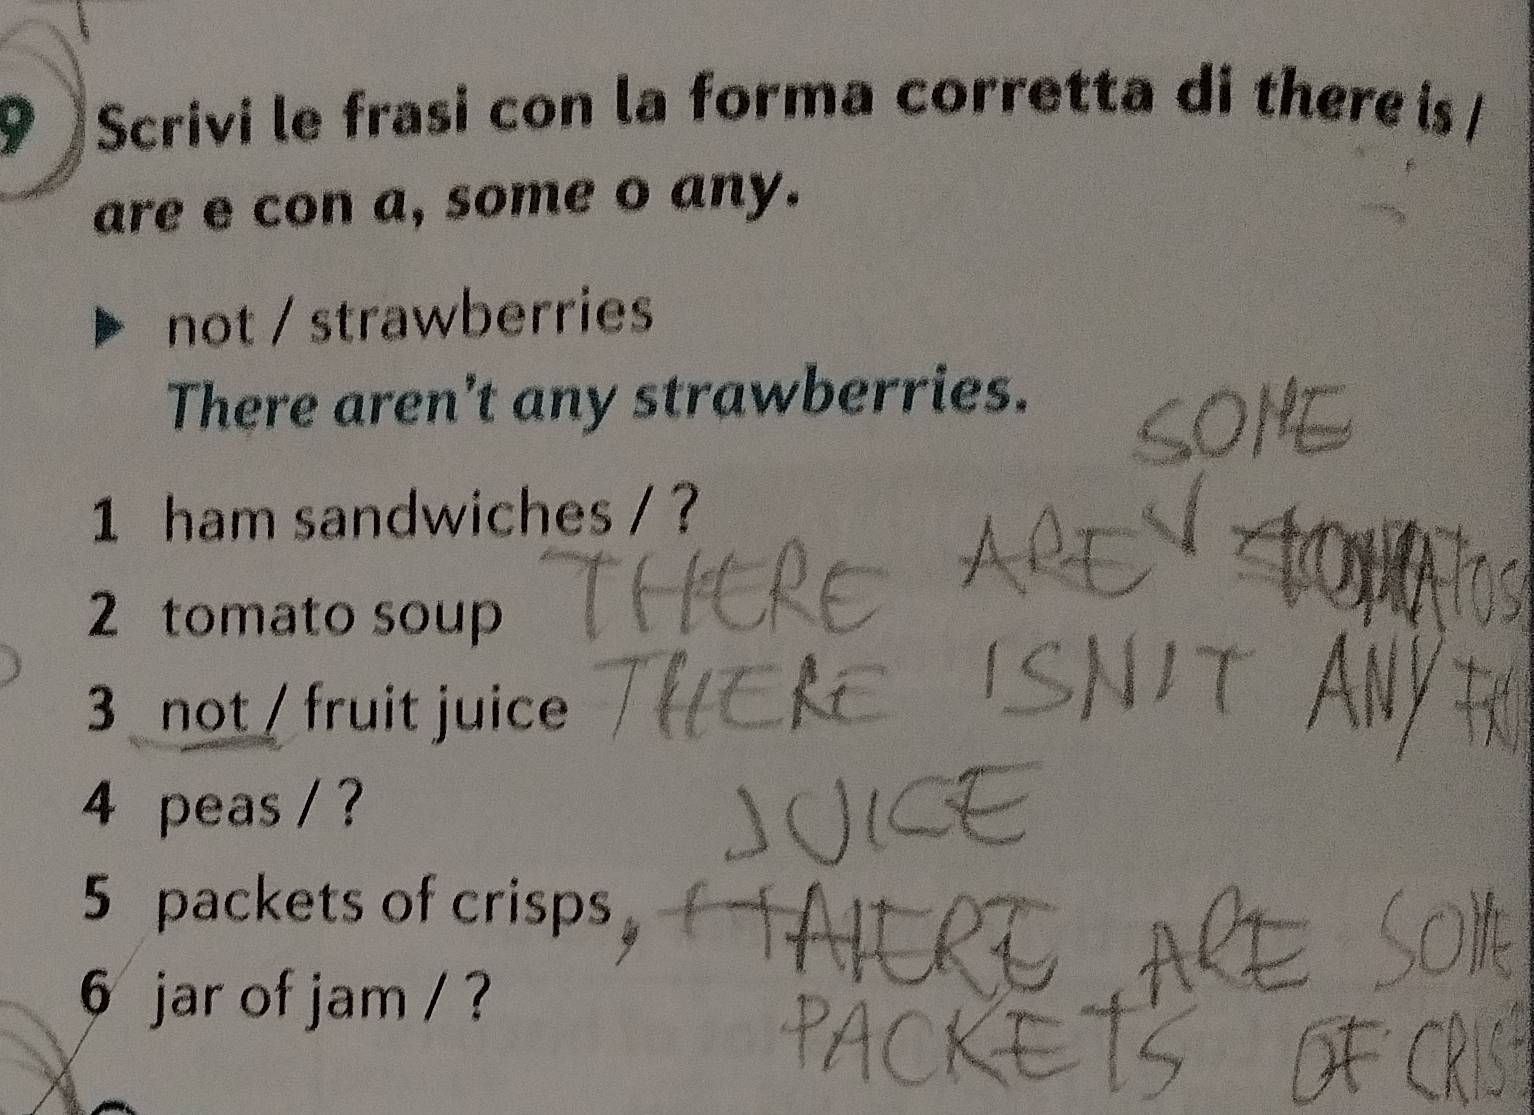 9 Scrivi le frasi con la forma corretta di there is /
are e con a, some o any.
▶ not / strawberries
There aren't any strawberries.
SOME
1 ham sandwiches / ?
THERE ARE √
2 tomato soup
THERE ISN'T ANY
3 not / fruit juice
4 peas / ?
JUICE
5 packets of crisps,
THERE ARE SOME
6 jar of jam / ?
PACKETS OF CRISP